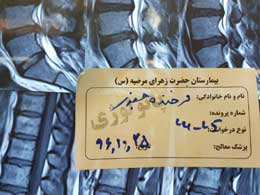 بیمارستان حضرت زهرای مرضیه (س)
نام و نام خانوادگی: فرخنده
شماره پرونده:
نوع درخواست:
پزشک معالج: ۹۶,۱۰,۲۵
فوری